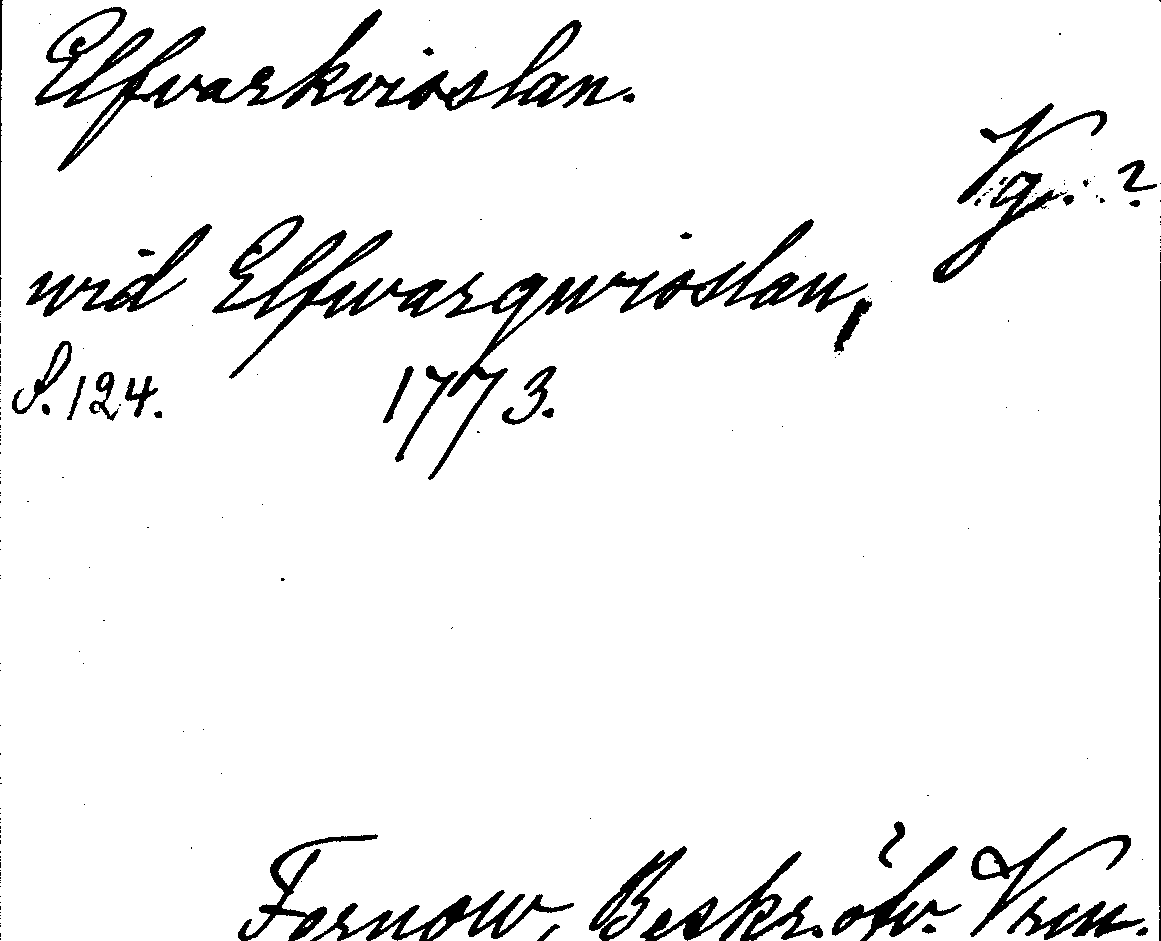 Elfvarkvioslan.
Vg. ?
wid Elfwarqwioslan,
S. 124. 1773.
Fernow, Beskr. öfv. Vrm.